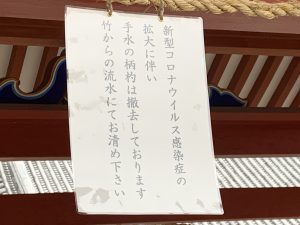 新型コロナウイルス感染症の
拡大に伴い
手水の柄杓は撤去しております
竹からの流水にてお清め下さい